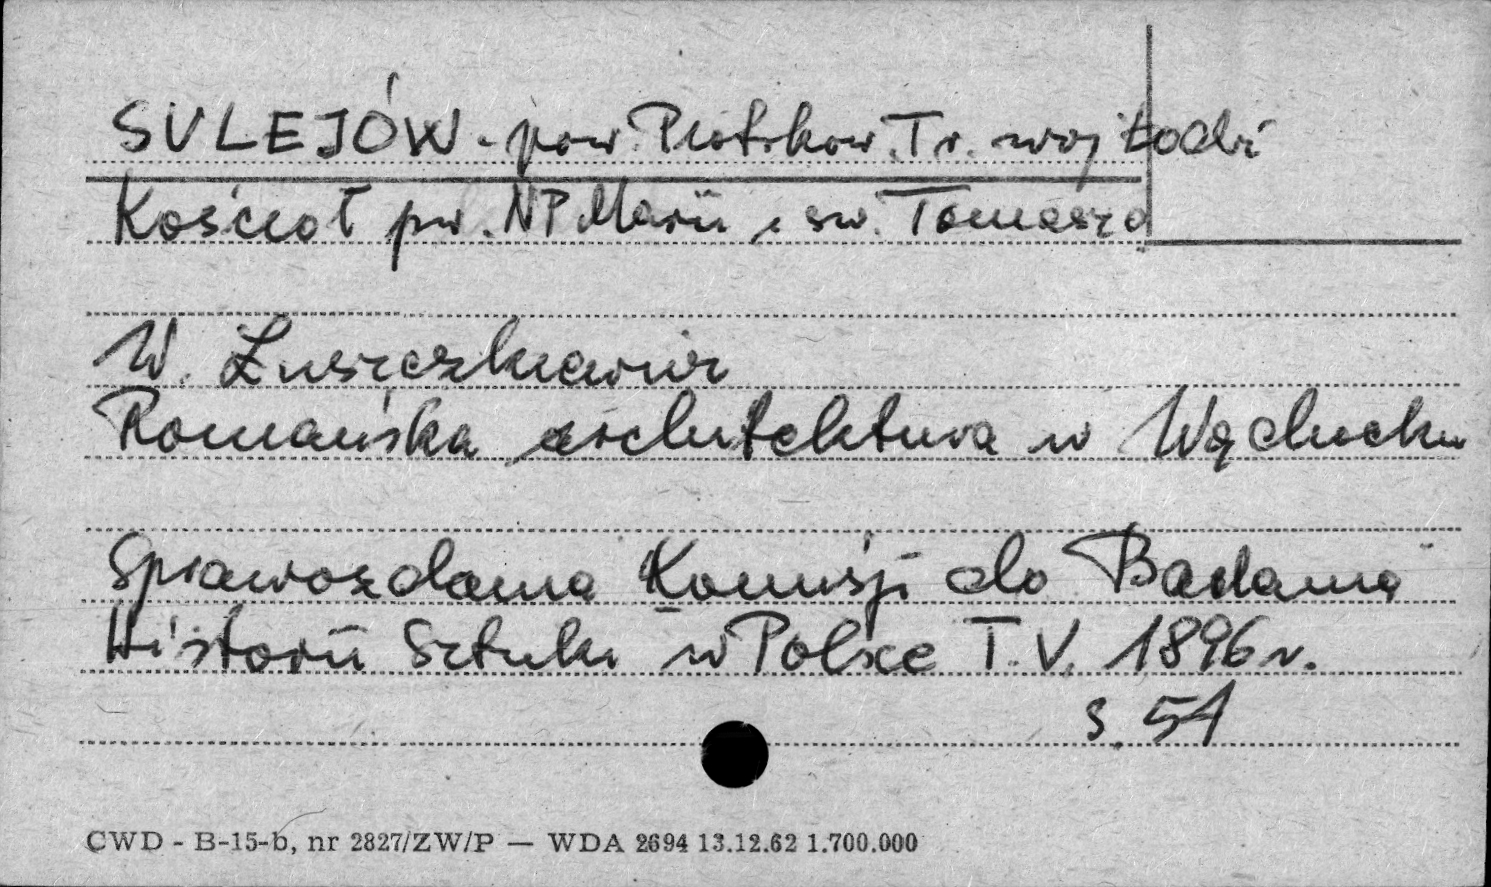 SULEJÓW - pow. Piotrkow. Tr. woj Łódź
Kościoł pw. NP Marii i św. Tomasza
W. Łuszczkiewicz
Romańska architektura w Wąchocku
Sprawozdania Komisji do Badania
Historii Sztuki w Polsce T. V. 1896 r.
s. 51
CWD - B-15-b, nr 2827/ZW/P — WDA 2694 13.12.62 1.700.000